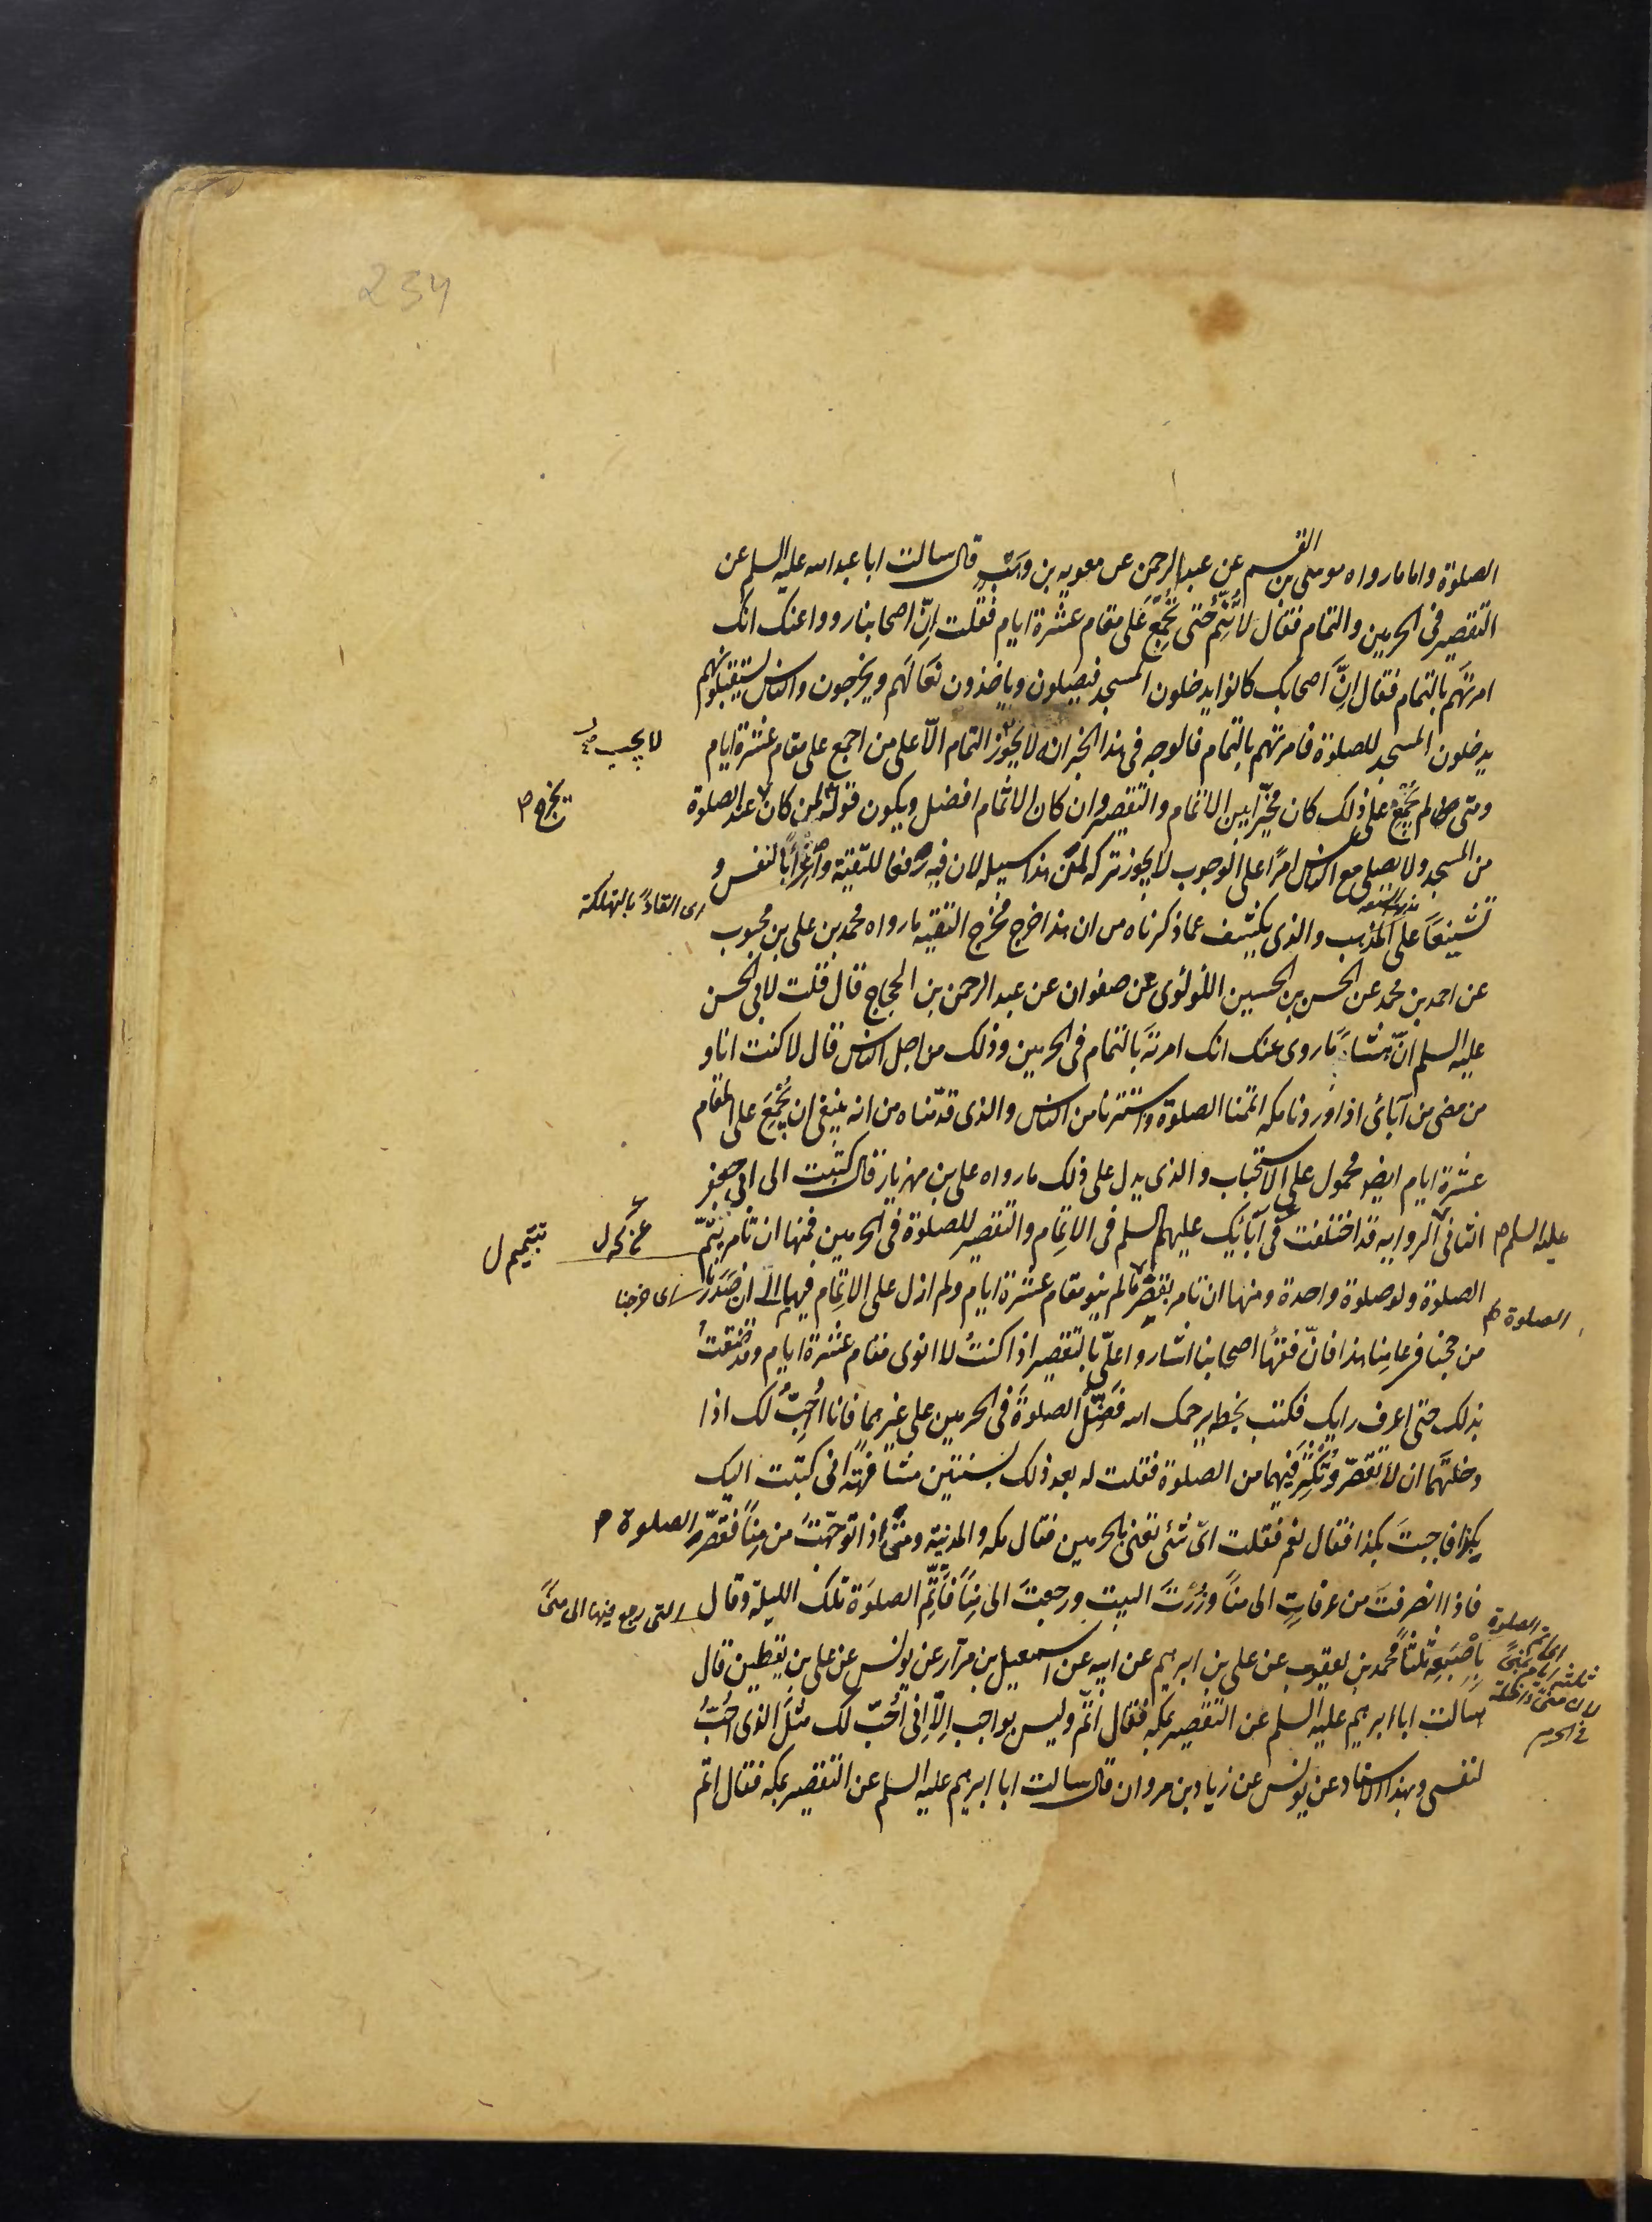 234
الصلوة واما ما رواه موسى بن القسم عن عبد الرحمن عن معويه بن وهب قال سالت ابا عبد الله عليه السلم عن
التقصير فى الحرمين والتمام فقال لا تتم حتى تجمع على مقام عشرة ايام فقلت ان اصحابنا رووا عنك انك
امرتهم بالتمام فقال ان اصحابك كانوا يدخلون المسجد فيصلون وياخذون نعالهم ويخرجون والناس يستقبلونهم
يدخلون المسجد للصلوة فامرتهم بالتمام فالوجه فى هذا الخبر انه لا يجوز التمام الا على من اجمع على مقام عشرة ايام
لا يجب
ومتى لم يجمع على ذلك كان مخيرا بين الاتمام والتقصير وان كان الاتمام افضل ويكون قوله لمن كان عند الصلوة
يخرج
من المسجد ولا يصلى مع الناس امرا على الوجوب لا يجوز تركه لمن هذا سبيله لان فيه رفعا للتقية واغراء بالنفس و
تشنيعا على المذهب والذى يكشف عما ذكرناه من ان هذا خرج مخرج التقيه ما رواه محمد بن على بن محبوب
اى القاء بالتهلكة
عن احمد بن محمد عن الحسن بن الحسين اللؤلؤى عن صفوان عن عبد الرحمن بن الحجاج قال قلت لابى الحسن
عليه السلم ان هشاما روى عنك انك امرته بالتمام فى الحرمين وذلك من اجل الناس قال لا كنت انا و
من مضى من آبائى اذا وردنا مكه اتممنا الصلوة واستترنا من الناس والذى قدمناه من انه ينبغى ان يجمع على المقام
عشرة ايام ايضا محمول على الاستحباب والذى يدل على ذلك ما رواه على بن مهزيار قال كتبت الى ابى جعفر
عليه السلم الثانى الروايه قد اختلفت عن آبائك عليهم السلم فى الاتمام والتقصير للصلوة فى الحرمين فمنها ان تامر بتتم
بتتميم ل
الصلوة ولو صلوة واحدة ومنها ان تامر بقصر ما لم ينو مقام عشرة ايام ولم ازل على الاتمام فيها الى ان صدرنا
الصلوة
اى خرجنا
من حجنا فى عامنا هذا فان فقهاء اصحابنا اشاروا على بالتقصير اذا كنت لا انوى مقام عشرة ايام وقد ضقت
بذلك حتى اعرف رايك فكتب بخطه يرحمك الله فضل الصلوة فى الحرمين على غيرهما فانا احب لك اذا
دخلتهما ان لا تقصر وتكثر فيهما من الصلوة فقلت له بعد ذلك بسنتين مشافهة انى كتبت اليك
بكذا فاجبت بكذا فقال نعم فقلت اى شئ تعنى بالحرمين فقال مكه والمدينة ومتى اذا توجهت من منا فقصر الصلوة
فاذا انصرفت من عرفات الى منا وزرت البيت ورجعت الى منا فاتم الصلوة تلك الليلة وقال
التى رجع فيها الى منى
باصبعه ثلثا محمد بن يعقوب عن على بن ابرهيم عن ابيه عن اسمعيل بن مرار عن يونس عن على بن يقطين قال
اى اتم الصلوة
ثلثة ايام بمنى
لان منى داخلة
فى الحرم
سالت ابا ابرهيم عليه السلم عن التقصير بمكه فقال اتم وليس بواجب الا انى احب لك مثل الذى احب
لنفسى وبهذا الاسناد عن يونس عن زياد بن مروان قال سالت ابا ابرهيم عليه السلم عن التقصير بمكه فقال اتم